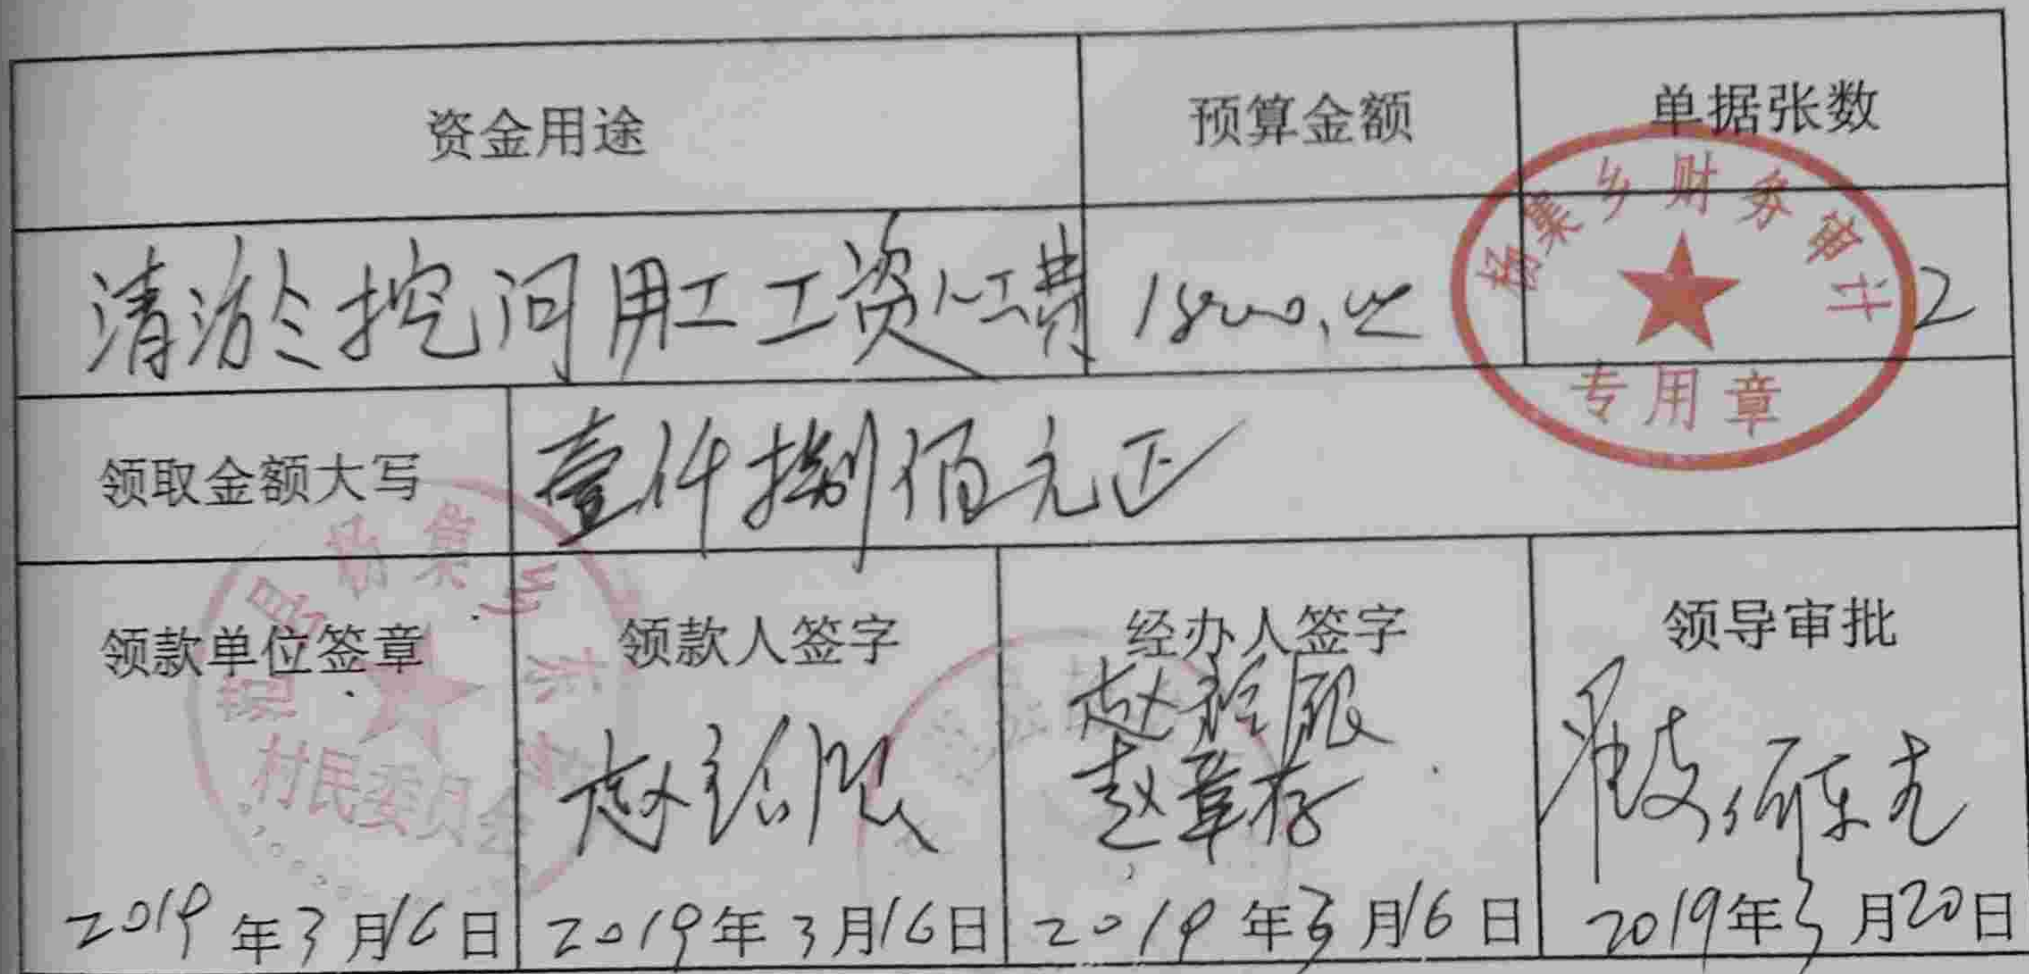 资金用途 预算金额 单据张数
清淤挖河用工工资人工费 1800.00 2
杨集乡财务审计
专用章
领取金额大写 壹仟捌佰元正
领款单位签章 领款人签字 经办人签字 领导审批
县杨集乡东
村民委员会
赵 赵
赵章存
2019年3月16日 2019年3月16日 2019年3月16日 2019年3月20日